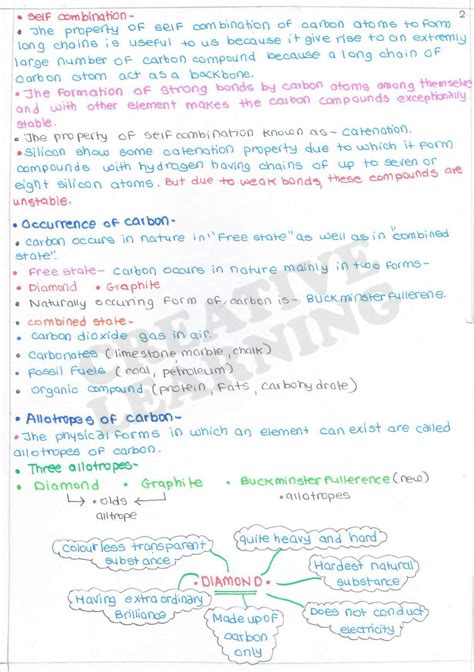 2
• Self combination-
• The property of self combination of carbon atoms to form
long chains is useful to us because it give rise to an extremly
large number of carbon compound because a long chain of
carbon atom act as a backbone.
• The formation of strong bonds by carbon atoms among themselve
and with other element makes the carbon compounds exceptionally
stable.
• The property of self combination known as- catenation.
• Silicon show some catenation property due to which it form
compounds with hydrogen having chains of up to seven or
eight silicon atoms. But due to weak bonds, these compounds are
unstable.
• Occurrence of carbon-
• carbon occurs in nature in "Free state" as well as in "combined
state".
• Free state- carbon occurs in nature mainly in two forms-
• Diamond • Graphite
• Naturally occuring form of carbon is- Buckminster fullerene.
• combined state-
• carbon dioxide gas in air.
• carbonates (limestone, marble, chalk)
• Fossil fuels (coal, petroleum)
• organic compound (protein, Fats, carbohydrate)
CREATIVE
LEARNING
• Allotropes of carbon-
• The physical forms in which an element can exist are called
allotropes of carbon.
• Three allotropes-
• Diamond • Graphite • Buckminster fullerence (new)
• olds • allotropes
alltrope
colourless transparent
substance
quite heavy and hard
Hardest natural
substance
• DIAMOND •
Having extraordinary
Brilliance
Made up of
carbon
only
Does not conduct
electricity